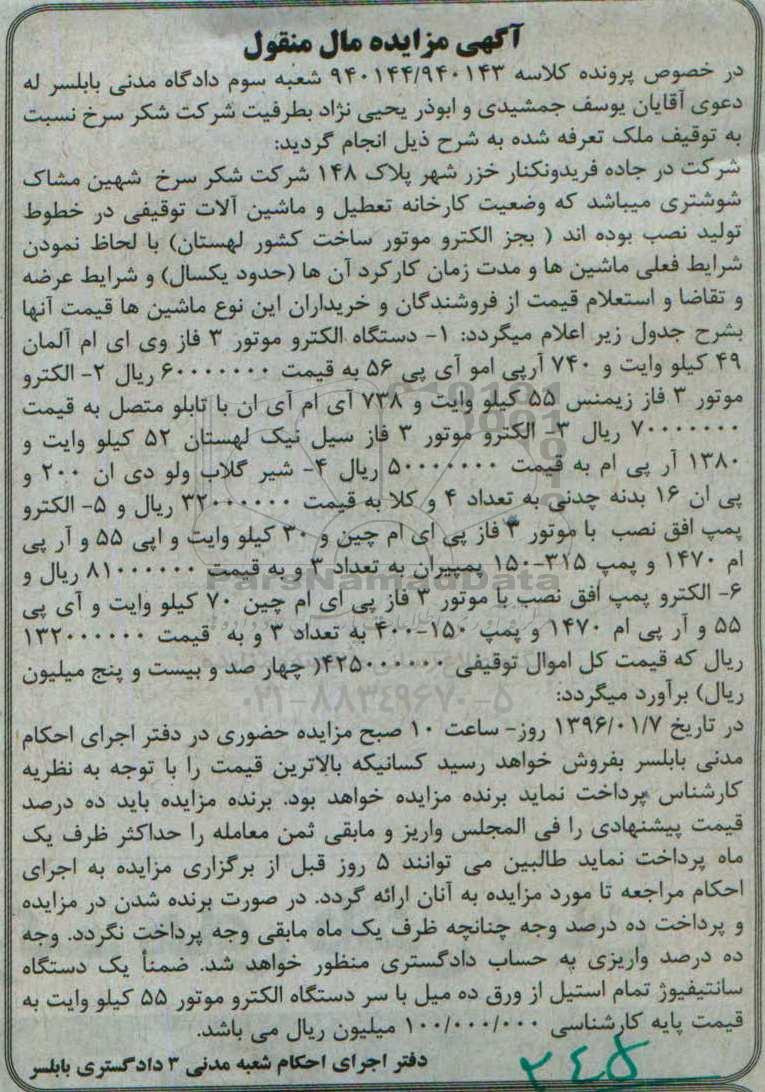 آگهی مزایده مال منقول
در خصوص پرونده کلاسه ۹۴۰۱۴۴/۹۴۰۱۴۳ شعبه سوم دادگاه مدنی بابلسر له
دعوی آقایان یوسف جمشیدی و ابوذر یحیی نژاد بطرفیت شرکت شکر سرخ نسبت
به توقیف ملک تعرفه شده به شرح ذیل انجام گردید:
شرکت در جاده فریدونکنار خزر شهر پلاک ۱۴۸ شرکت شکر سرخ شهین مشاک
شوشتری میباشد که وضعیت کارخانه تعطیل و ماشین آلات توقیفی در خطوط
تولید نصب بوده اند ( بجز الکترو موتور ساخت کشور لهستان) با لحاظ نمودن
شرایط فعلی ماشین ها و مدت زمان کارکرد آن ها (حدود یکسال) و شرایط عرضه
و تقاضا و استعلام قیمت از فروشندگان و خریداران این نوع ماشین ها قیمت آنها
بشرح جدول زیر اعلام میگردد: ۱- دستگاه الکترو موتور ۳ فاز وی ای ام آلمان
۴۹ کیلو وایت و ۷۴۰ آرپی امو آی پی ۵۶ به قیمت ۶۰۰۰۰۰۰۰ ریال ۲- الکترو
موتور ۳ فاز زیمنس ۵۵ کیلو وایت و ۷۳۸ آی ام آی ان با تابلو متصل به قیمت
۷۰۰۰۰۰۰۰ ریال ۳- الکترو موتور ۳ فاز سیل نیک لهستان ۵۲ کیلو وایت و
۱۳۸۰ آر پی ام به قیمت ۵۰۰۰۰۰۰۰ ریال ۴- شیر گلاب ولو دی ان ۲۰۰ و
پی ان ۱۶ بدنه چدنی به تعداد ۴ و کلا به قیمت ۳۲۰۰۰۰۰۰ ریال و ۵- الکترو
پمپ افق نصب با موتور ۳ فاز پی ای ام چین و ۳۰ کیلو وایت و اپی ۵۵ و آر پی
ام ۱۴۷۰ و پمپ ۳۱۵-۱۵۰ پمپیران به تعداد ۳ و به قیمت ۸۱۰۰۰۰۰۰ ریال و
۶- الکترو پمپ افق نصب با موتور ۳ فاز پی ای ام چین ۷۰ کیلو وایت و آی پی
۵۵ و آر پی ام ۱۴۷۰ و پمپ ۱۵۰-۴۰۰ به تعداد ۳ و به قیمت ۱۳۲۰۰۰۰۰۰
ریال که قیمت کل اموال توقیفی ۴۲۵۰۰۰۰۰۰( چهار صد و بیست و پنج میلیون
ریال) برآورد میگردد:
در تاریخ ۱۳۹۶/۰۱/۷ روز- ساعت ۱۰ صبح مزایده حضوری در دفتر اجرای احکام
مدنی بابلسر بفروش خواهد رسید کسانیکه بالاترین قیمت را با توجه به نظریه
کارشناس پرداخت نماید برنده مزایده خواهد بود. برنده مزایده باید ده درصد
قیمت پیشنهادی را فی المجلس واریز و مابقی ثمن معامله را حداکثر ظرف یک
ماه پرداخت نماید طالبین می توانند ۵ روز قبل از برگزاری مزایده به اجرای
احکام مراجعه تا مورد مزایده به آنان ارائه گردد. در صورت برنده شدن در مزایده
و پرداخت ده درصد وجه چنانچه ظرف یک ماه مابقی وجه پرداخت نگردد. وجه
ده درصد واریزی به حساب دادگستری منظور خواهد شد. ضمناً یک دستگاه
سانتیفیوژ تمام استیل از ورق ده میل با سر دستگاه الکترو موتور ۵۵ کیلو وایت به
قیمت پایه کارشناسی ۱۰۰/۰۰۰/۰۰۰ میلیون ریال می باشد.
دفتر اجرای احکام شعبه مدنی ۳ دادگستری بابلسر
ParsNamadData
۰۲۱-۸۸۳۴۹۶۷۰-۵